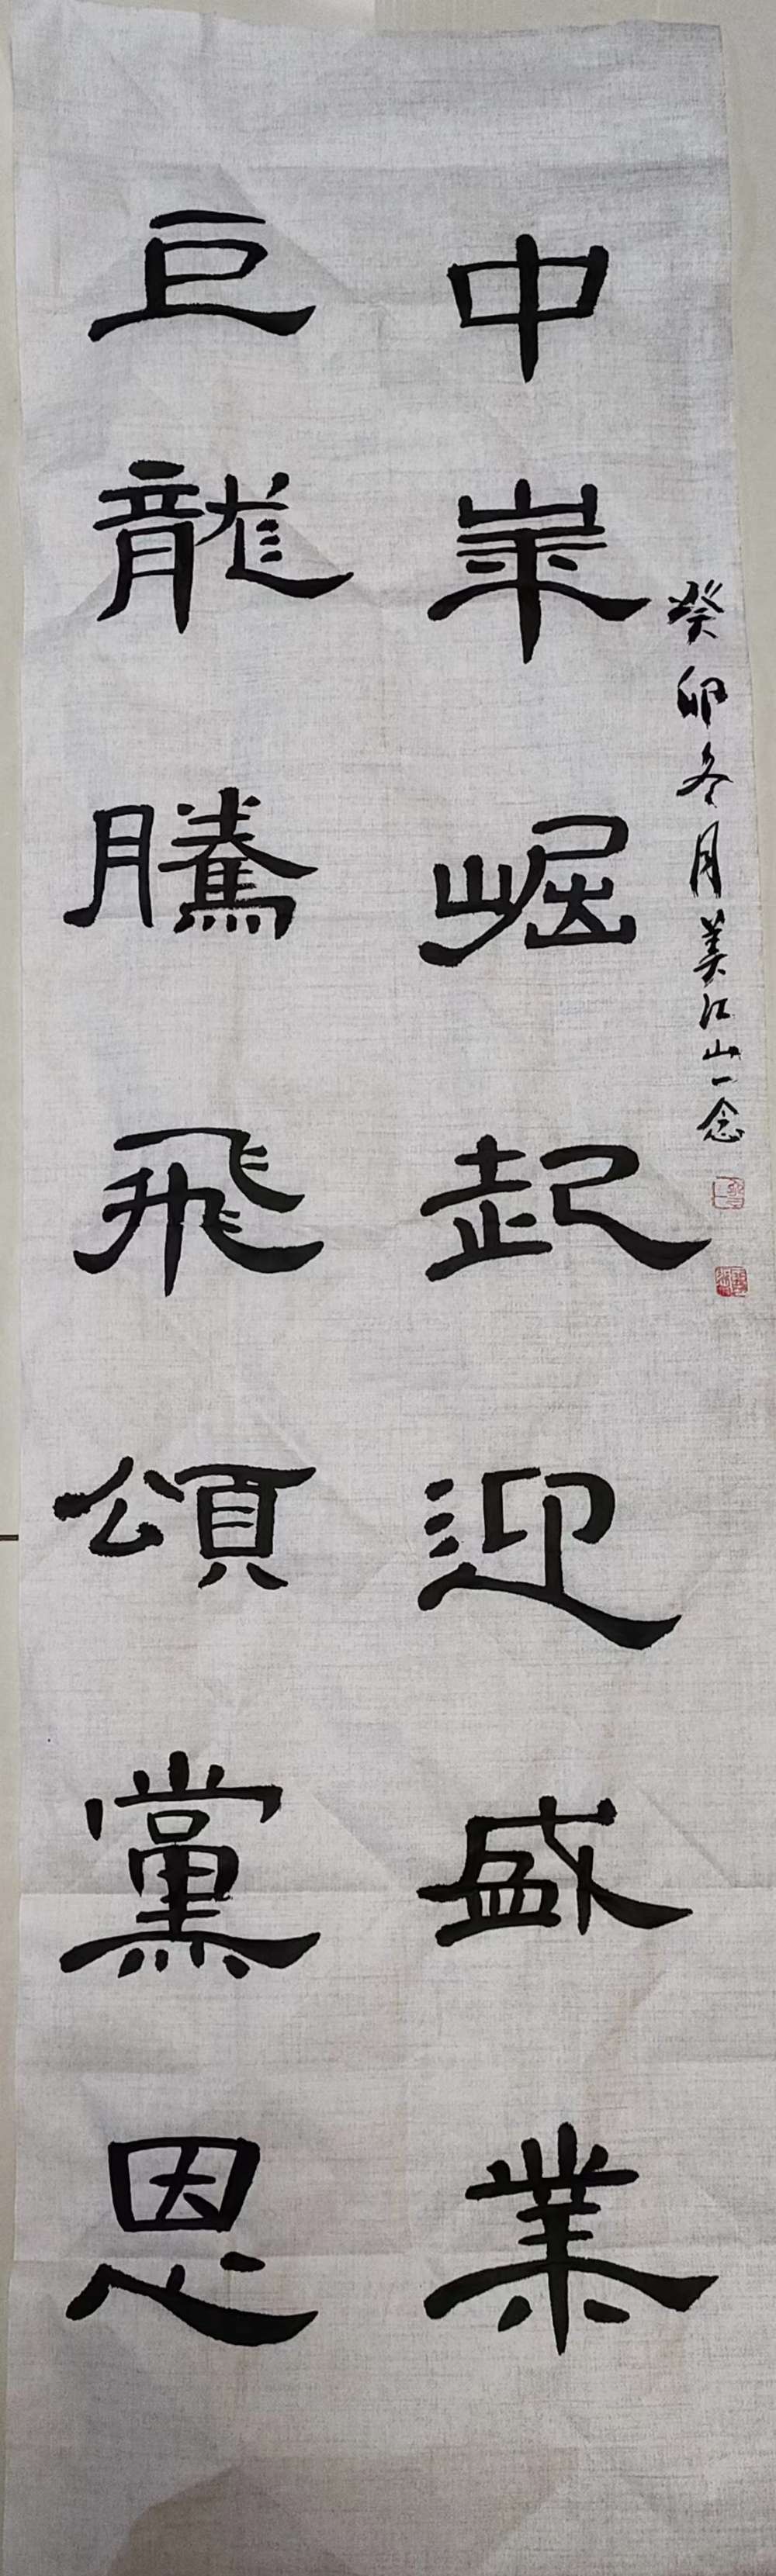 癸卯冬月美江山一念
中華崛起迎盛業
巨龍騰飛頌黨恩